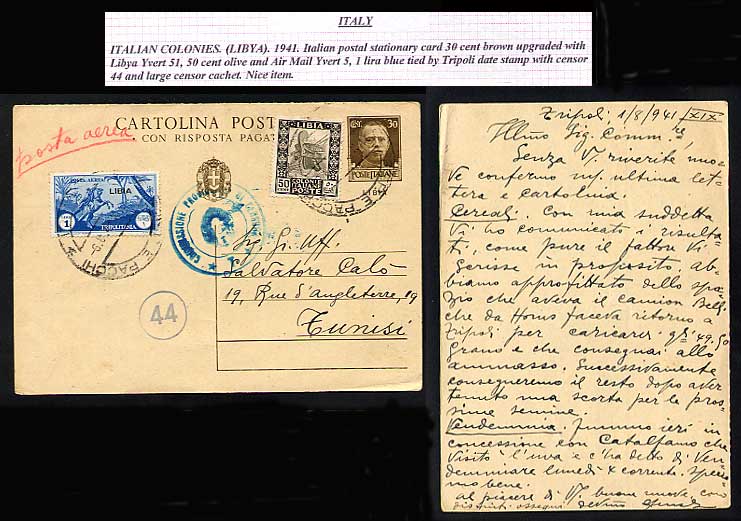 ITALY
ITALIAN COLONIES. (LIBYA). 1941. Italian postal stationary card 30 cent brown upgraded with
Libya Yvert 51, 50 cent olive and Air Mail Yvert 5, 1 lira blue tied by Tripoli date stamp with censor
44 and large censor cachet. Nice item.
posta aerea
CARTOLINA POST
CON RISPOSTA PAGAT
LIBIA
50
POSTE
30
POSTE ITALIANE
POSTA AEREA
LIBIA
1
TRIPOLITANIA
E PACCHI
44
Sig. Gr. Uff.
Salvatore Calò
19, Rue d'Angleterre, 19
Tunisi
Tripoli, 1/8/941 XIX
Illmo Sig. Comm.re,
Senza V. riverite nuo-
ve confermo mp. ultima let-
tera e cartolina.
Cereali. Con mia suddetta
Vi ho comunicati i risulta-
ti, come pure il fattore Vi
scrisse in proposito, ab-
biamo approfittato dello spa-
zio che aveva il camion Belli
che da Homs faceva ritorno a
Tripoli per caricarci qli 49.50
grano e che consegnai allo
ammasso. Successivamente
consegneremo il resto dopo aver
tenuto una scorta per le pros-
sime semine.
Vendemmia. fummo ieri in
concessione con Catalfamo che
visitò l'uva e c'ha detto di ven-
demmiare lunedì 4 corrente. speria-
mo bene.
al piacere di V. buone nuove con
distinti ossequi